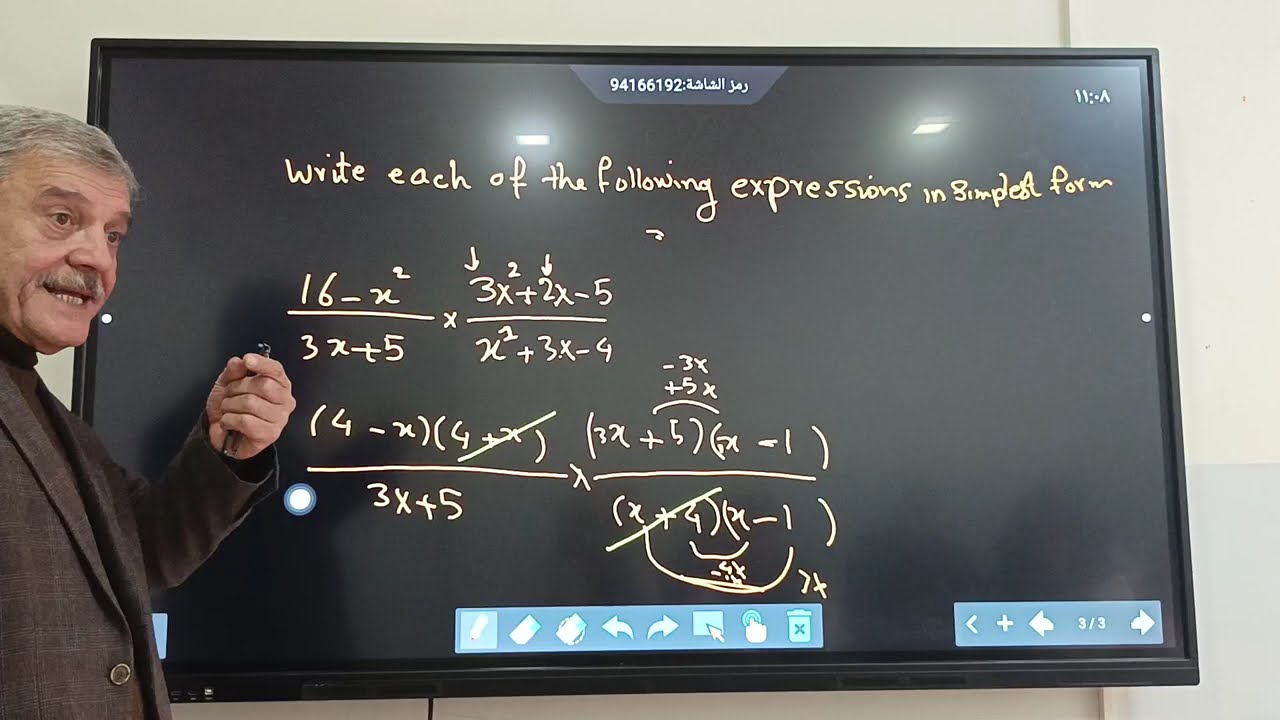 رمز الشاشة:94166192
١١:٠٨
Write each of the following expressions in simplest form
16-x² / 3x+5 × 3x²+2x-5 / x²+3x-4
-3x
+5x
(4-x)(4+x) / 3x+5 × (3x+5)(x-1) / (x+4)(x-1)
3/3